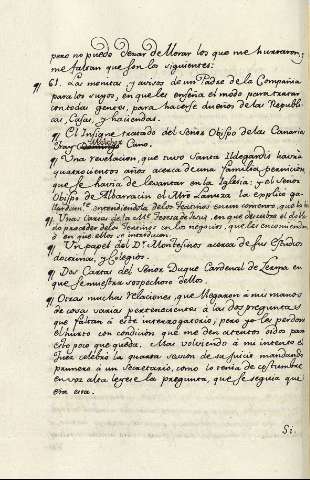 pero no puedo dexar de llorar los que me hurtaron,
me faltan que son los siguientes:
¶ 61. Las monitas y avisos de un Padre de la Compañia
para los suyos, en que les enseña el modo para tratar
con todas gentes, para hacerse dueños de las Republi-
cas, Casas, y haciendas.
¶ El Insigne tratado del Señor Obispo de las Canarias
Fray Melchor Cano.
¶ Una revelacion, que tuvo Santa Ildegardis havrá
quatrocientos años acerca de una familia perniciosa
que se havia de levantar en la Iglesia: y el Señor
Obispo de Albarracin el Mro Lanuza la explicó ga-
entendiendola de los Teatinos
Una Carta de la Me. Teresa de Jesus, en que descubre el doble
proceder de los Teatinos en los negocios, que les encomiendan
ó en que ellos se introducen.
¶ Un papel del Dr. Montesinos acerca de sus Estudios
doctrina, y Colegios.
¶ Dos Cartas del Señor Duque Cardenal de Lerma en
que se muestra sospechoso dellos.
¶ Otras muchas relaciones, que llegaron á mis manos
de cosas varias pertenecientes á las dos preguntas
que faltan á este interrogatorio; pero yo les perdono
el hurto con condicion que me den atentos oidos para
esto poco que queda. Mas volviendo á mi intento el
Juez celebró la quarta sesion de su juicio mandando
primero á un Secretario, como lo tenia de costumbre
en voz alta leyese la pregunta, que se seguia que
era esta.
Si